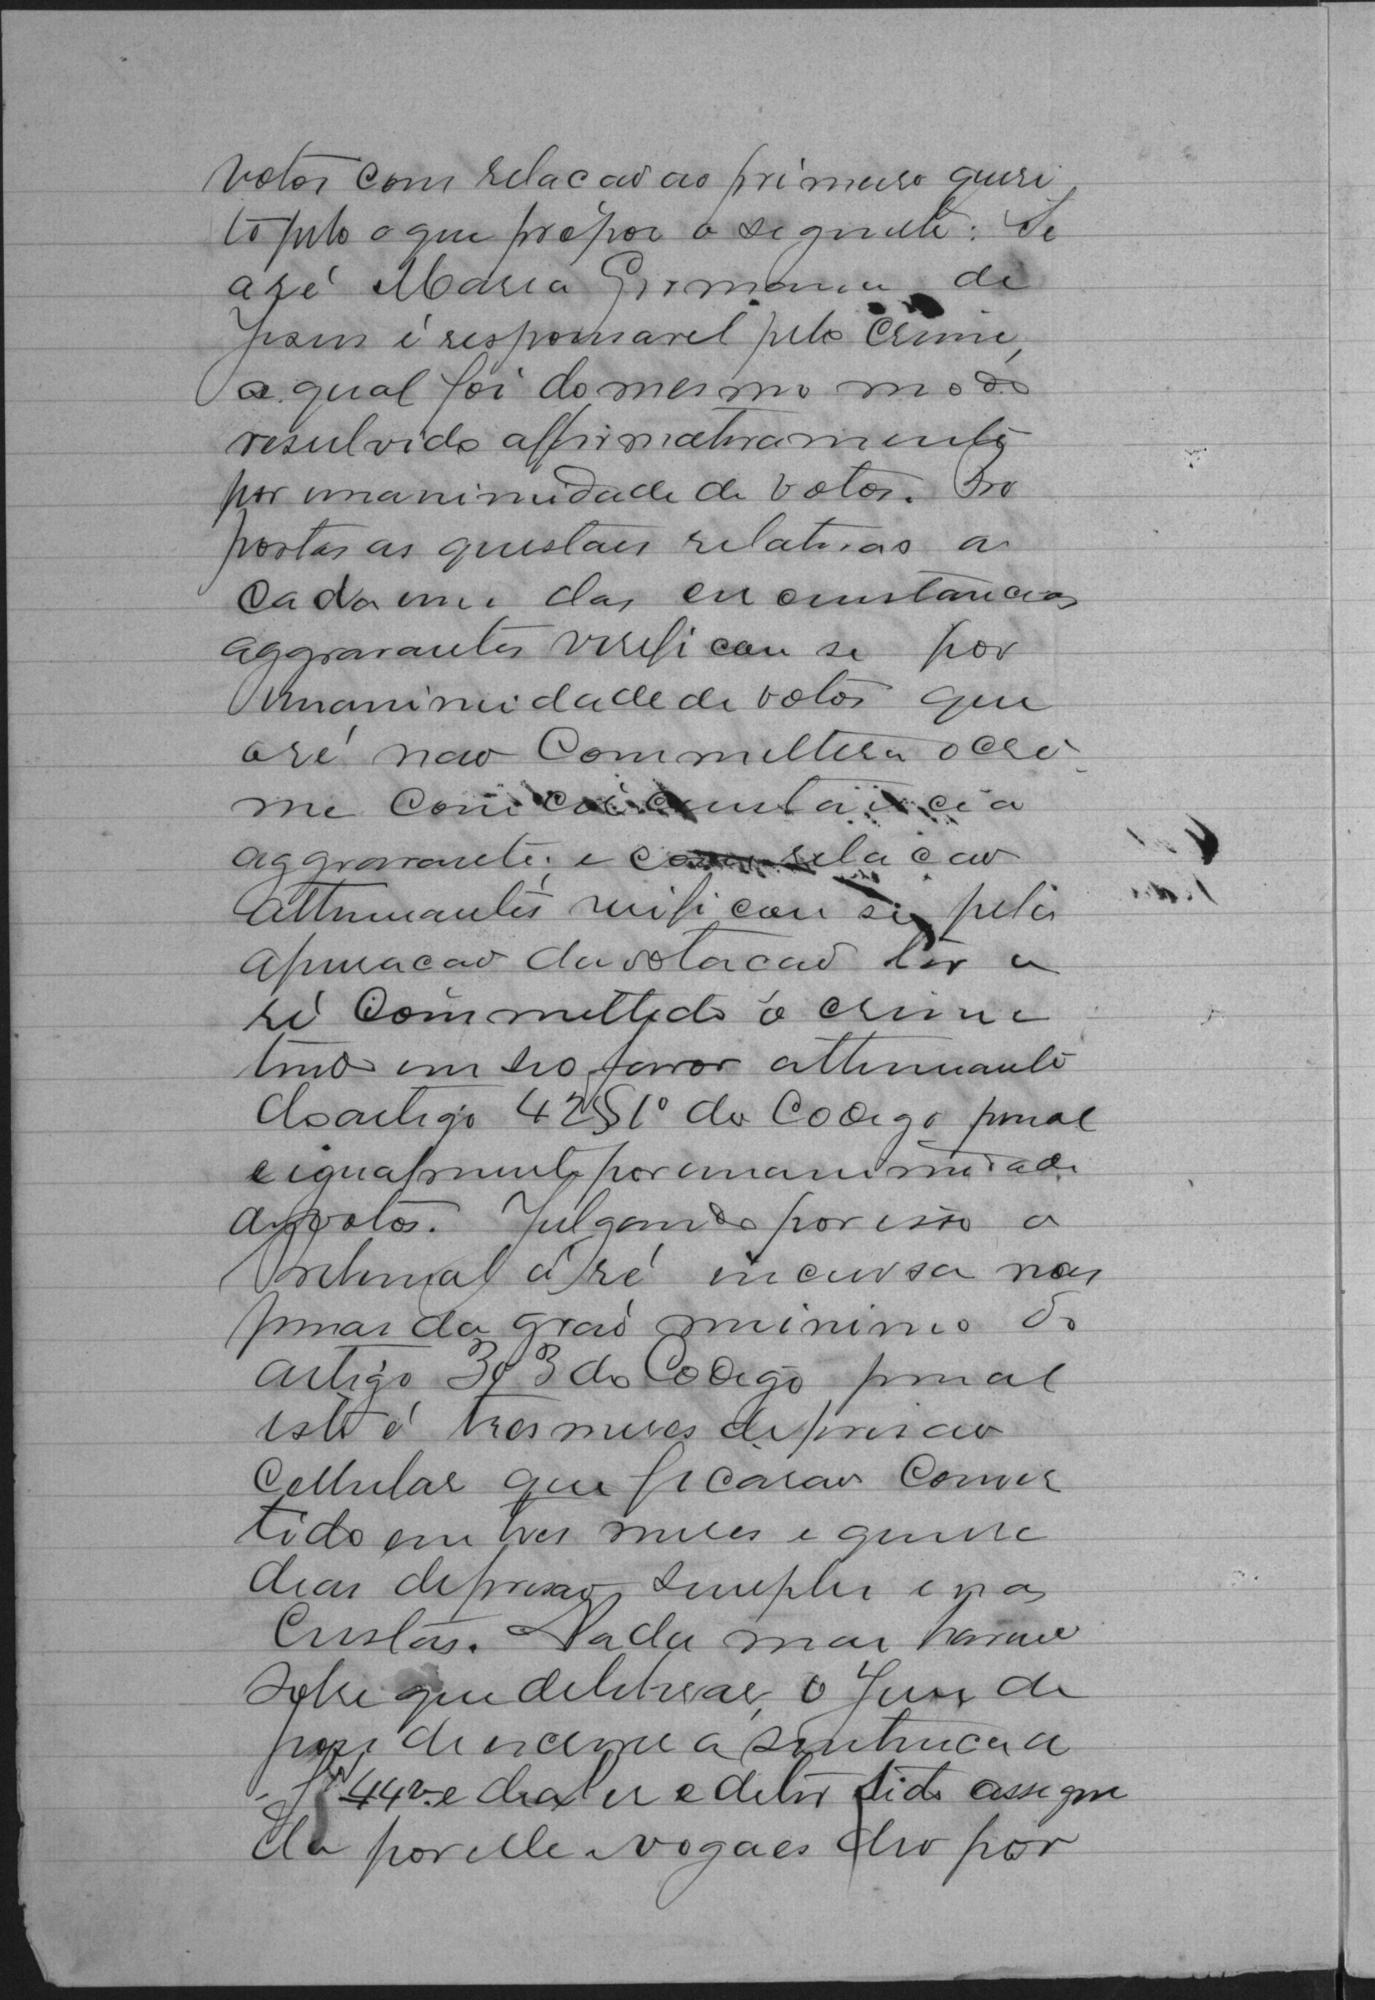 votos com relacao ao primeiro quesi
to pelo o que propoz o seguinte: Se
a ré Maria Germana de
Jesus é responsavel pelo crime,
o qual foi do mesmo modo
resulvido affirmativamente
por unanimidade de votos. Pro
postas as questões relativas a
cada uma das circumstancias
aggravantes verificou se por
unanimidade de votos que
a ré nao commettera o cri
me com circumstancia
aggravante; e com relacao
attenuantes verificou se pela
apuracao da votacao ter a
ré commettido o crime
tendo em seo favor attenuante
do artigo 42 § 1º do Codigo penal
e igualmente por unanimidade
de votos. Julgando por isso o
Tribunal a ré incursa nas
penas do grao minimo do
artigo 303 do Codigo penal
isto é tres meses de prisao
cellular que ficarao conver
tido em tres meses e quinse
dias de prisao simples e nas
Custas. Nada mais havendo
sobre que deliberar, o Juiz de
pois de escrever a sentenca a
fs 44v. e dealer e deter sido assigna
da por elle e vogaes deo por